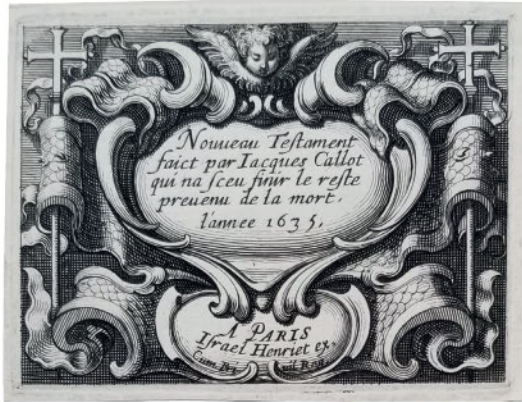 Nouueau Teſtament
faict par Iacques Callot
qui na ſceu finir le reſte
preuenu de la mort.
l'annee 1635.
A PARIS
Iſrael Henriet ex.
Cum Pri uil Reg.